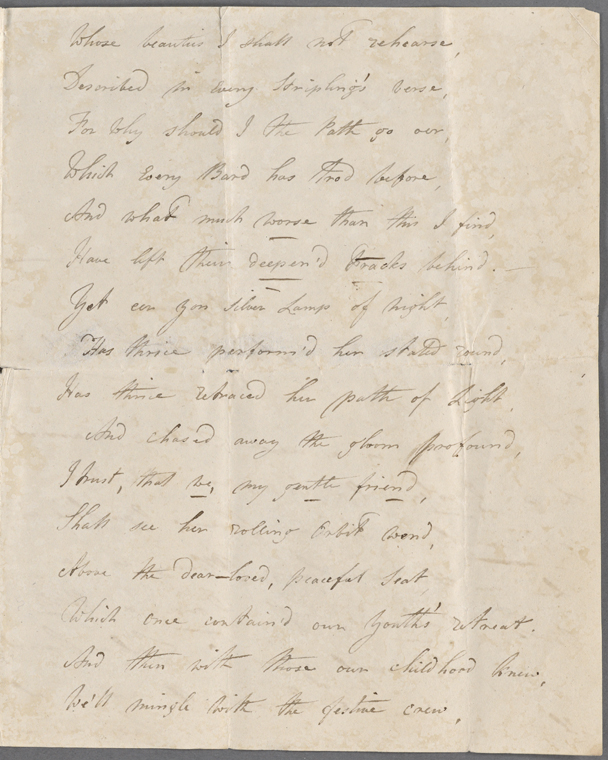 Whose beauties I shall not rehearse,
Described in every Stripling's verse,
For why should I the Path go o'er,
Which every Bard has trod before,
And what much worse than this I find,
Have left their deepen'd Tracks behind. —
Yet ere yon silver Lamp of Night,
Has thrice perform'd her stated round,
Has thrice retraced her path of Light,
And chased away the gloom profound,
I trust, that we, my gentle friend,
Shall see her rolling Orbit wend,
Above the dear-loved, peaceful Seat,
Which once contain'd our Youth's retreat.
And then with those our childhood knew,
We'll mingle with the festive crew,